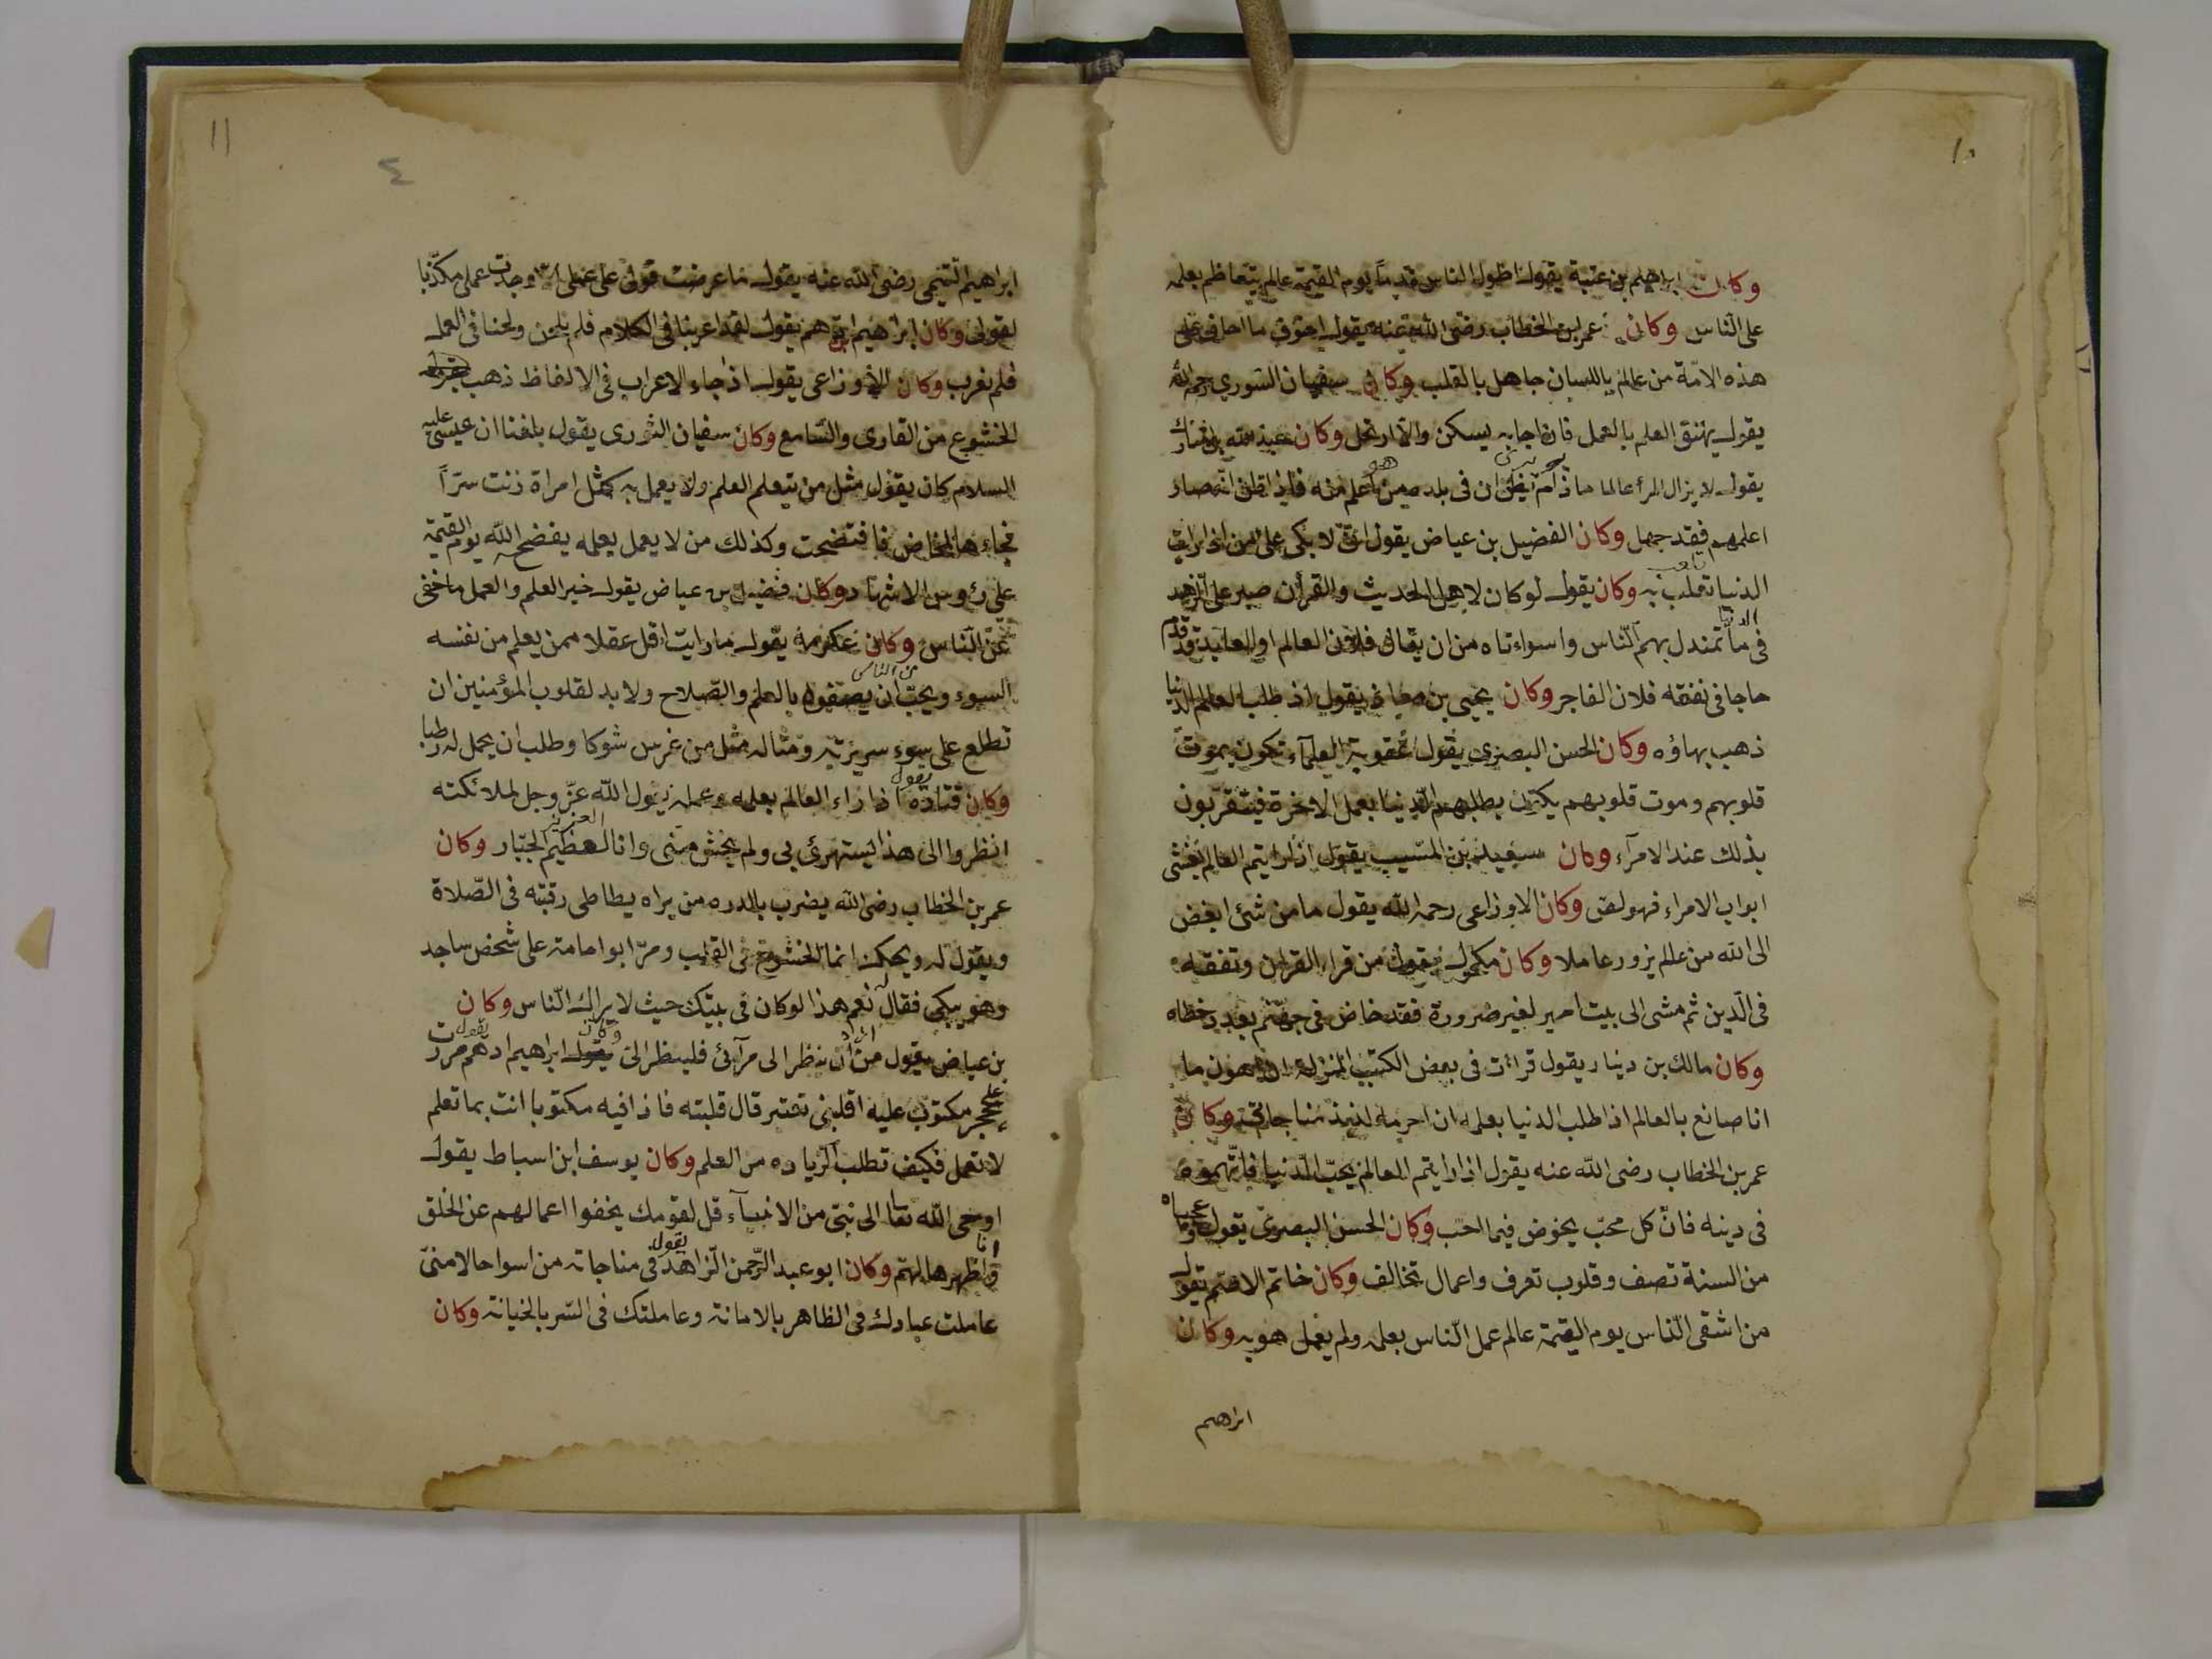 ١٠
وكان ابراهيم بن عتبة يقول اطول الناس ندما يوم القيمة عالم يتعاظم بعلمه
على النّاس وكان عمر بن الخطاب رضى الله عنه يقول اخوف ما اخاف على
هذه الامّة من عالم باللسان جاهل بالقلب وكان سفيان الثوري رحمه الله
يقول يهتف العلم بالعمل فان اجابه يسكن والّا ارتحل وكان عبد الله بن المبارك
يقول لا يزال المرأ عالما ما دام يظن ان فى بلده من هو أعلم منه فاذا ظن انّه صار
اعلمهم فقد جهل وكان الفضيل بن عياض يقول انى لا بكى على من اذا رايت
الدنيا تلعب به وكان يقول لو كان لاهل الحديث والقرأن صبر على الزهد
فى الدنيا ما تمندل بهم النّاس واسواءتاه من ان يقال فلان العالم او العابد قدم
حاجا فى نفقة فلان الفاجر وكان يحيى بن معاذ يقول اذ طلب العالم الدنيا
ذهب بهاؤه وكان الحسن البصرى يقول عقوبة العلمآء تكون بموت
قلوبهم وموت قلوبهم يكون بطلبهم الدّنيا بعمل الاخرة فيتقربون
بذلك عند الامرآء وكان سعيد بن المسّيب يقول اذا رايتم العالم يغشى
ابواب الامراء فهو لص وكان الاوزاعى رحمه الله يقول ما من شئ ابغض
الى الله من عالم يزور عاملا وكان مكحول يقول من قراء القران وتفقه
فى الّدين ثم مشى الى بيت امير لغير ضرورة فقد خاض فى جهنّم بعدد خطاه
وكان مالك بن دينار يقول قرات فى بعض الكتب المنزلة ان اهون ما
انا صانع بالعالم اذا طلب الدنيا بعلمه ان احرمه لذيذ مناجاتى وكان
عمر بن الخطاب رضى الله عنه يقول اذا رايتم العالم يحبّ الدّنيا فاتّهموه
فى دينه فانّ كل محبّ يخوض فيما احب وكان الحسن البصرىّ يقول عجباه
من السنة تصف وقلوب تعرف واعمال تخالف وكان حاتم الاصّم يقول
من اشقى النّاس يوم القيمة عالم عمل النّاس بعلمه ولم يعمل هو به وكان
ابراهيم
١١
٤
ابراهيم التّيمى رضى الله عنه يقول ما عرضت قولى على عملى الا وجدت عملى مكذّبا
لقولى وكان ابراهيم ادهم يقول لقد اعربنا فى الكلام فلم نلحن ولحنا فى العمل
فلم نعرب وكان الأوزاعى يقول اذا جاء الاعراب فى الالفاظ ذهب
الخشوع من القارى والسّامع وكان سفيان الثورى يقول بلغنا ان عيسى عليه
السلام كان يقول مثل من يتعلم العلم ولا يعمل به كمثل امراة زنت سرّاً
فجاءها المخاض فافتضحت وكذلك من لا يعمل بعلمه يفضحه الله يوم القيمة
على رؤوس الاشهاد وكان فضيل بن عياض يقول خير العلم والعمل ما خفى
عن النّاس وكان عكرمة يقول ما رايت اقل عقلا ممن يعلم من نفسه
السوء ويحبّ من الناس ان يصفوه بالعلم والصّلاح ولا بد لقلوب المؤمنين ان
تطلع على سوء سريرته ومثاله مثل من غرس شوكا وطلب ان يحمل له رطبا
وكان قتادة يقول اذا راء العالم بعلمه وعمله يقول الله عزّ وجل لملائكته
انظروا الى هذا يستهزئ بى ولم يخش منى وانا العزيز العظيم الجبّار وكان
عمر بن الخطاب رضى الله يضرب بالدره من يراه يطاطى رقبته فى الصّلاة
ويقول له ويحك انما الخشوع فى القلب ومرّ ابو امامة على شخص ساجد
وهو يبكى فقال نعم هذا لو كان فى بيتك حيث لا يراك النّاس وكان
بن عياض يقول من اراد أن ينظر الى مرآئى فلينظر الىّ وكان ابراهيم ادهم يقول مررت
على حجر مكتوب عليه اقلبنى تعتبر قال قلبته فاذا فيه مكتوبا انت بما تعلم
لا تعمل فكيف تطلب الزياده من العلم وكان يوسف ابن اسباط يقول
اوحى الله تعا الى نبىّ من الانبيآء قل لقومك يخفوا اعمالهم عن الخلق
وانا اظهرها لهمّ وكان ابو عبد الرّحمن الزاهد يقول فى مناجاته من اسوا حالا منىّ
عاملت عبادك فى الظاهر بالامانة وعاملتك فى السّر بالخيانة وكان